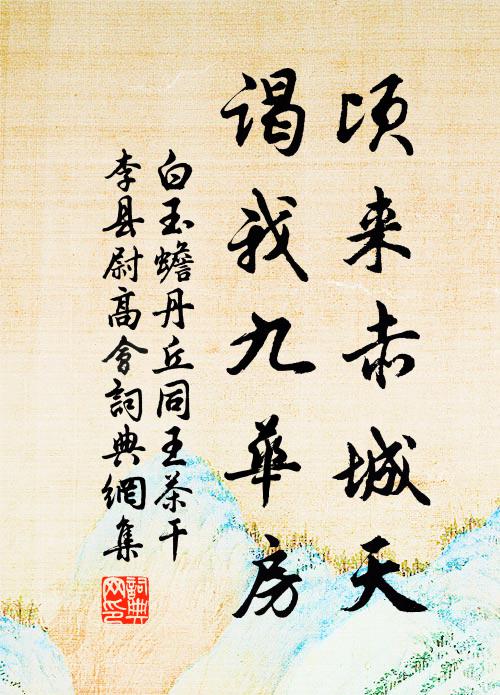 顷来赤城天
谒我九华房
白玉蟾丹丘同王茶干
李县尉高会词典網集
詞典網印